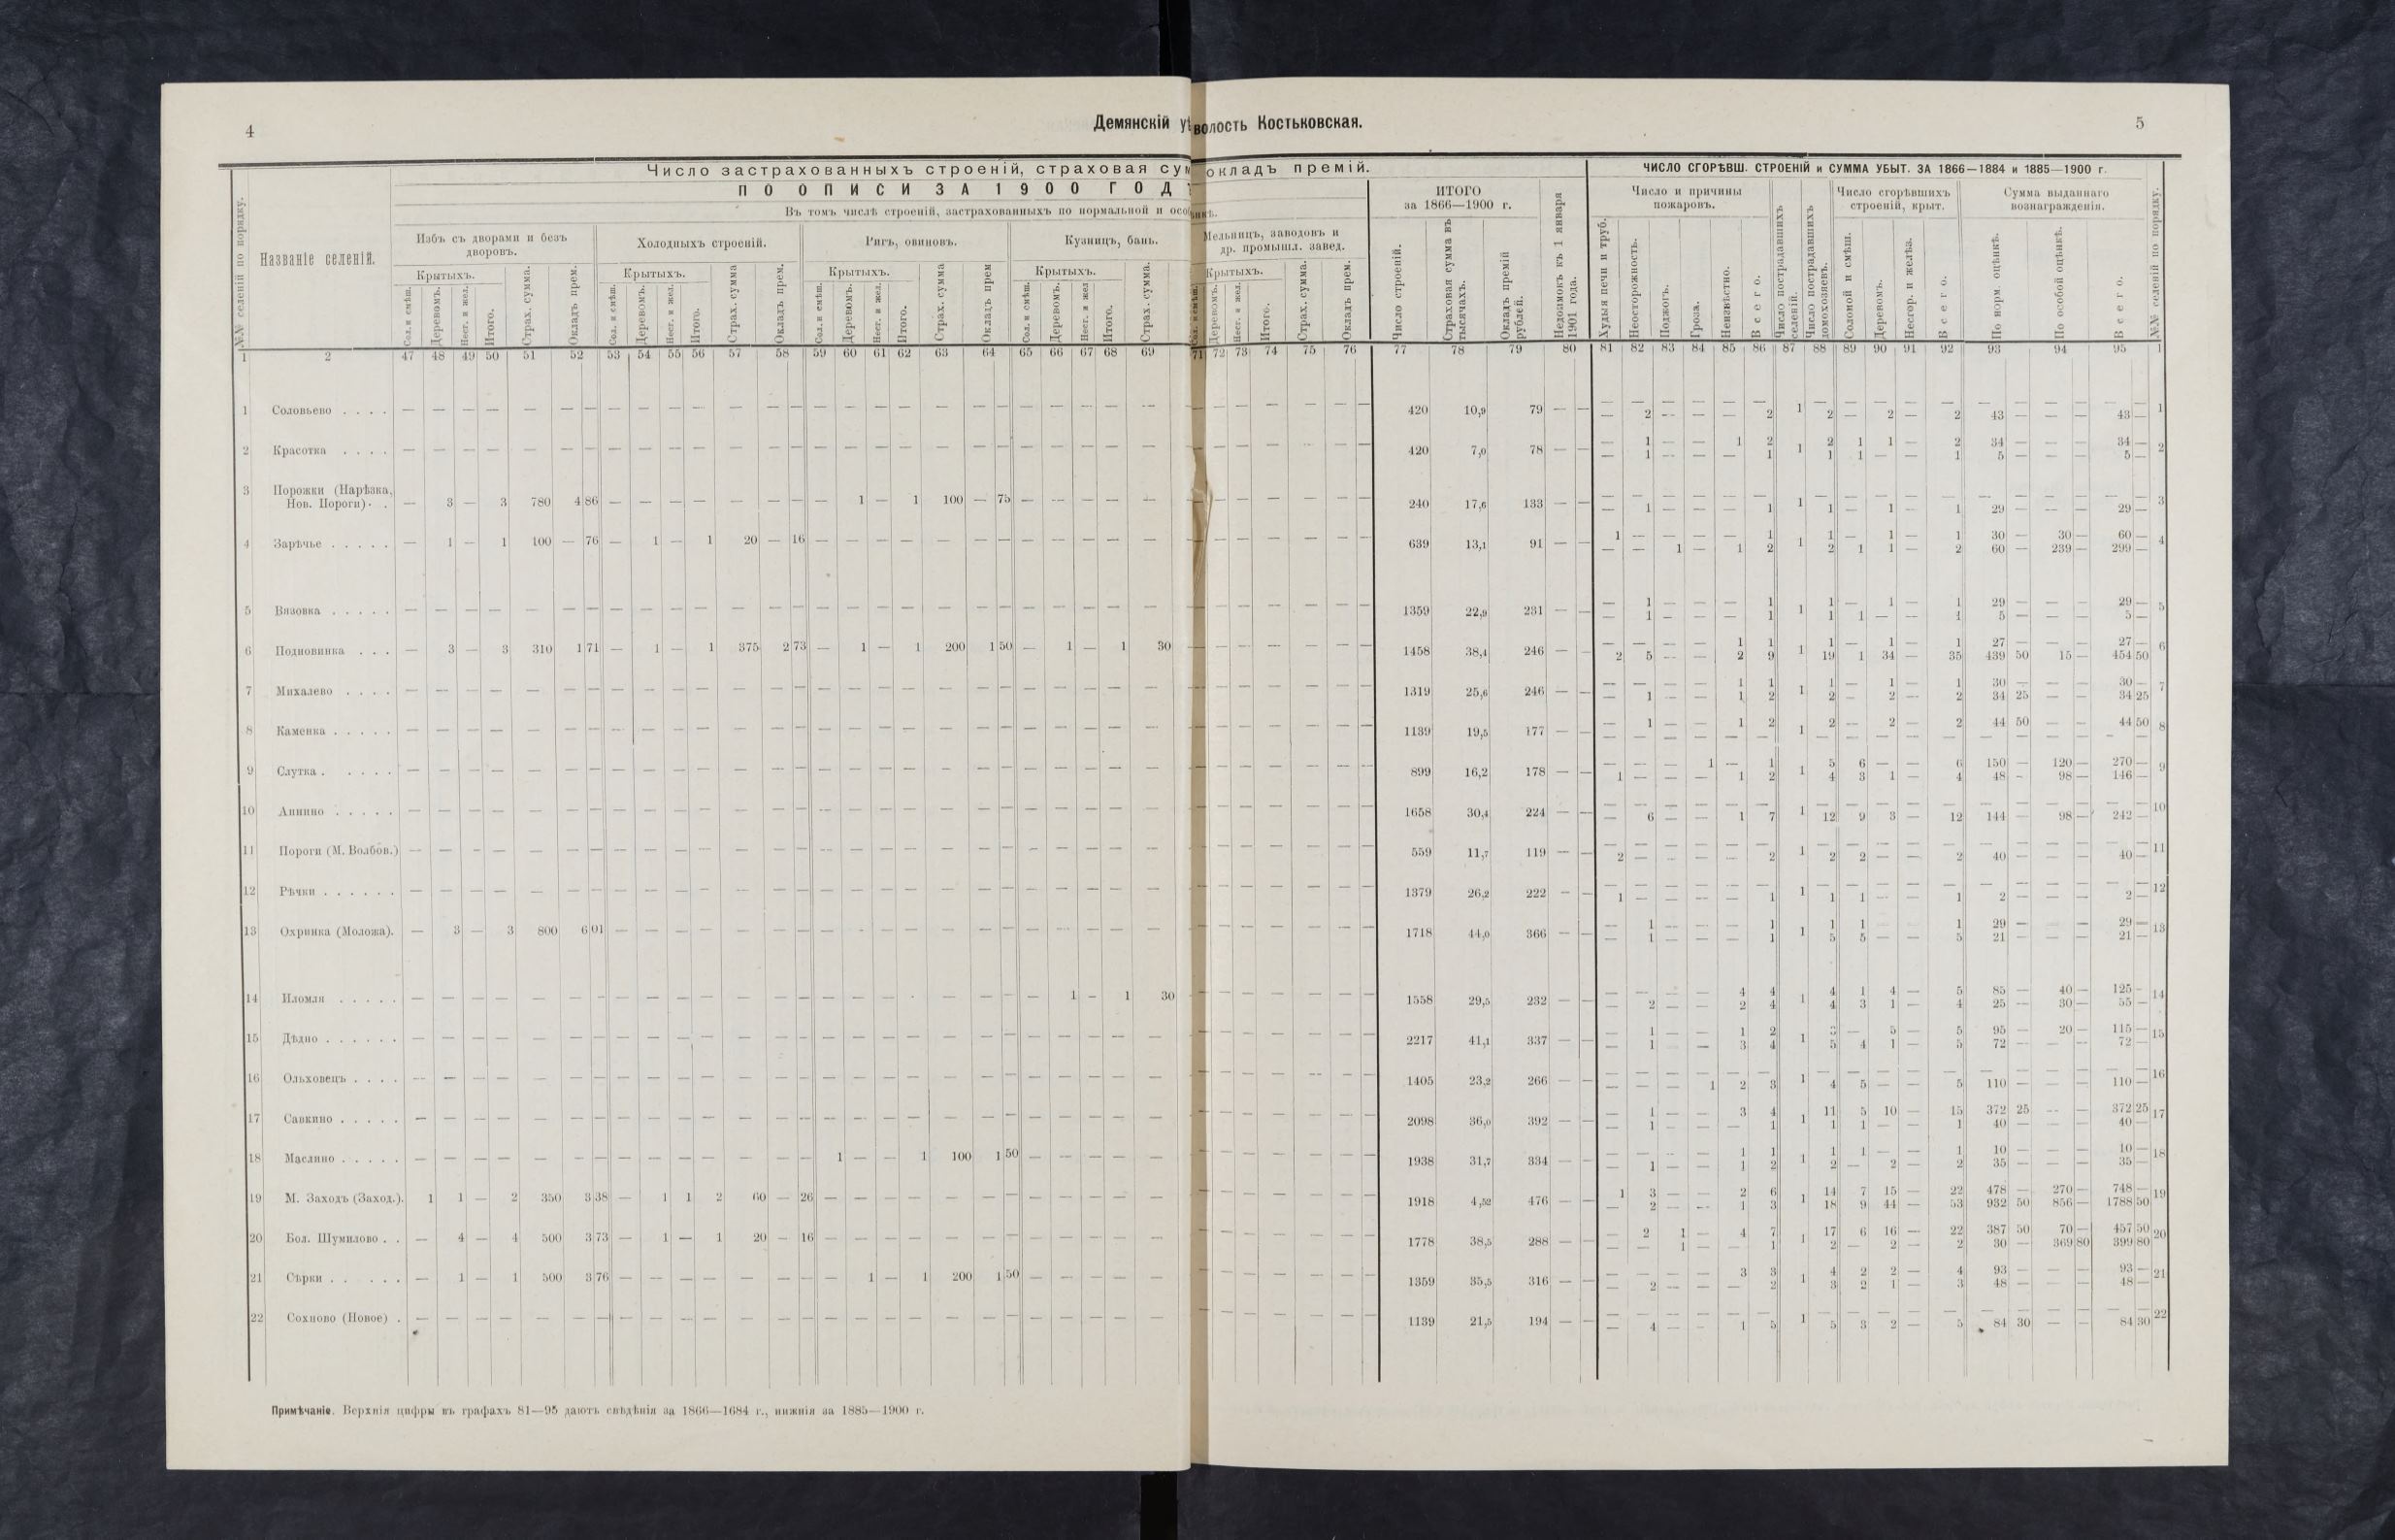 4
Демянскій уѣ
волость Костьковская.
5
Число застрахованныхъ строеній, страховая сум
окладъ премій.
ЧИСЛО СГОРѢВШ. СТРОЕНІЙ и СУММА УБЫТ. ЗА 1866—1884 и 1885—1900 г.
ПО ОПИСИ ЗА 1900 ГОД
Въ томъ числѣ строеній, застрахованныхъ по нормальной и особ
ѣнкѣ.
ИТОГО за 1866—1900 г.
Недоимокъ къ 1 января 1901 года.
Число и причины пожаровъ.
Число пострадавшихъ селеній.
Число пострадавшихъ домохозяевъ.
Число сгорѣвшихъ строеній, крыт.
Сумма выданнаго вознагражденія.
№№ селеній по порядку.
Названіе селеній.
Избъ съ дворами и безъ дворовъ.
Холодныхъ строеній.
Ригъ, овиновъ.
Кузницъ, бань.
Мельницъ, заводовъ и др. промышл. завед.
Крытыхъ. Крытыхъ. Крытыхъ. Крытыхъ. Крытыхъ.
Сол. и смѣш. Деревомъ. Несг. и жел. Итого. Страх. сумма. Окладъ прем.
Сол. и смѣш. Деревомъ. Несг. и жел. Итого. Страх. сумма Окладъ прем.
Сол. и смѣш. Деревомъ. Несг. и жел. Итого. Страх. сумма Окладъ прем
Сол. и смѣш. Деревомъ. Несг. и жел Итого. Страх. сумма.
Сол. и смѣш. Деревомъ. Несг. и жел. Итого. Страх. сумма. Окладъ прем.
Число строеній. Страховая сумма въ тысячахъ. Окладъ премій рублей.
Худыя печи и труб. Неосторожность. Поджогъ. Гроза. Неизвѣстно. Всего.
Соломой и смѣш. Деревомъ. Несгор. и желѣз. Всего.
По норм. оцѣнкѣ. По особой оцѣнкѣ. Всего.
№№ селеній по порядку.
1 2 47 48 49 50 51 52 53 54 55 56 57 58 59 60 61 62 63 64 65 66 67 68 69 71 72 73 74 75 76 77 78 79 80 81 82 83 84 85 86 87 88 89 90 91 92 93 94 95 1
1 Соловьево . . . . — — — — — — — — — — — — — — — — — — — — — — — — — — — — — 420 10,9 79 — — 1 1
— 2 — — — 2 2 — 2 — 2 43 — — — 43 —
2 Красотка . . . . — — — — — — 420 7,0 78 — — 1 2
— 1 — — 1 2 2 1 1 — 2 34 — — — 34 —
— 1 — — — 1 1 1 — — 1 5 — — — 5 —
3 Порожки (Нарѣзка,
Нов. Пороги) . — 3 — 3 780 4 86 — — — — — — — 1 — 1 100 — 75 — — — — — 240 17,6 133 — — 1 3
— 1 — — — 1 1 — 1 — 1 29 — — — 29 —
4 Зарѣчье . . . . . — 1 — 1 100 — 76 — 1 — 1 20 — 16 — — — — — 639 13,1 91 — — 1 4
1 — — — — 1 1 — 1 — 1 30 — 30 — 60 —
— — 1 — 1 2 2 1 1 — 2 60 — 239 — 299 —
5 Вязовка . . . . . — — — — — — 1359 22,9 231 — — 1 5
— 1 — — — 1 1 — 1 — 1 29 — — — 29 —
— 1 — — — 1 1 1 — — 1 5 — — — 5 —
6 Подновинка . . . — 3 — 3 310 1 71 — 1 — 1 375 2 73 — 1 — 1 200 1 50 — 1 — 1 30 — — — — — — 1458 38,4 246 — — 1 6
— — — — 1 1 1 — 1 — 1 27 — — — 27 —
2 5 — — 2 9 19 1 34 — 35 439 50 15 — 454 50
7 Михалево . . . . — — — — — — 1319 25,6 246 — — 1 7
— — — — 1 1 1 — 1 — 1 30 — — — 30 —
— 1 — — 1 2 2 — 2 — 2 34 25 — — 34 25
8 Каменка . . . . . — — — — — — 1139 19,5 177 — — 1 8
— 1 — — 1 2 2 — 2 — 2 44 50 — — 44 50
9 Слутка . . . . . — — — — — — 899 16,2 178 — — 1 9
— — — 1 — 1 5 6 — — 6 150 — 120 — 270 —
1 — — — 1 2 4 3 1 — 4 48 — 98 — 146 —
10 Аннино . . . . . — — — — — — 1658 30,4 224 — — 1 10
— 6 — — 1 7 12 9 3 — 12 144 — 98 — 242 —
11 Пороги (М. Волбов.) — — — — — — 559 11,7 119 — — 1 11
2 — — — — 2 2 2 — — 2 40 — — — 40 —
12 Рѣчки . . . . . . — — — — — — 1379 26,2 222 — — 1 12
1 — — — — 1 1 1 — — 1 2 — — — 2 —
13 Охринка (Моложа). — 3 — 3 800 6 01 — — — — — — 1718 44,0 366 — — 1 13
— 1 — — — 1 1 1 1 29 — — — 29 —
— 1 — — — 1 5 5 — — 5 21 — — — 21 —
14 Иломля . . . . . — — — — — — — 1 — 1 30 — — — — — — 1558 29,5 232 — — 1 14
— — — — 4 4 4 1 4 — 5 85 — 40 — 125 —
— 2 — — 2 4 4 3 1 — 4 25 — 30 — 55 —
15 Дѣдно . . . . . . — — — — — — 2217 41,1 337 — — 1 15
— 1 — — 1 2 — 5 — 5 95 — 20 — 115 —
— 1 — — 3 4 5 4 1 — 5 72 — — — 72 —
16 Ольховецъ . . . . — — — — — — 1405 23,2 266 — — 1 16
— — — 1 2 3 4 5 — — 5 110 — — — 110 —
17 Савкино . . . . . — — — — — — 2098 36,0 392 — — 1 17
— 1 — — 3 4 11 5 10 — 15 372 25 — — 372 25
— 1 — — — 1 1 1 — — 1 40 — — — 40 —
18 Маслино . . . . . — — — — — — 1 — — 1 100 1 50 — — — — — 1938 31,7 334 — — 1 18
— — — — 1 1 1 1 — — 1 10 — — — 10 —
— 1 — — 1 2 2 — 2 — 2 35 — — — 35 —
19 М. Заходъ (Заход.). 1 1 — 2 350 3 38 — 1 1 2 60 — 26 — — — — — 1918 4,52 476 — — 1 19
1 3 — — 2 6 14 7 15 — 22 478 — 270 — 748 —
— 2 — — 1 3 18 9 44 — 53 932 50 856 — 1788 50
20 Бол. Шумилово . . — 4 — 4 500 3 73 — 1 — 1 20 — 16 — — — — — 1778 38,5 288 — — 1 20
— 2 1 — 4 7 17 6 16 — 22 387 50 70 — 457 50
— — 1 — — 1 2 — 2 — 2 30 — 369 80 399 80
21 Сѣрки . . . . . . — 1 — 1 500 3 76 — — — — — — — 1 — 1 200 1 50 — — — — — 1359 35,5 316 — — 1 21
— — — — 3 3 4 2 2 — 4 93 — — — 93 —
— 2 — — — 2 3 2 1 — 3 48 — — — 48 —
22 Сохново (Новое) . — — — — — — 1139 21,5 194 — — 1 22
— 4 — — 1 5 5 3 2 — 5 84 30 — — 84 30
Примѣчаніе. Верхнія цифры въ графахъ 81—95 даютъ свѣдѣнія за 1866—1684 г., нижнія за 1885—1900 г.